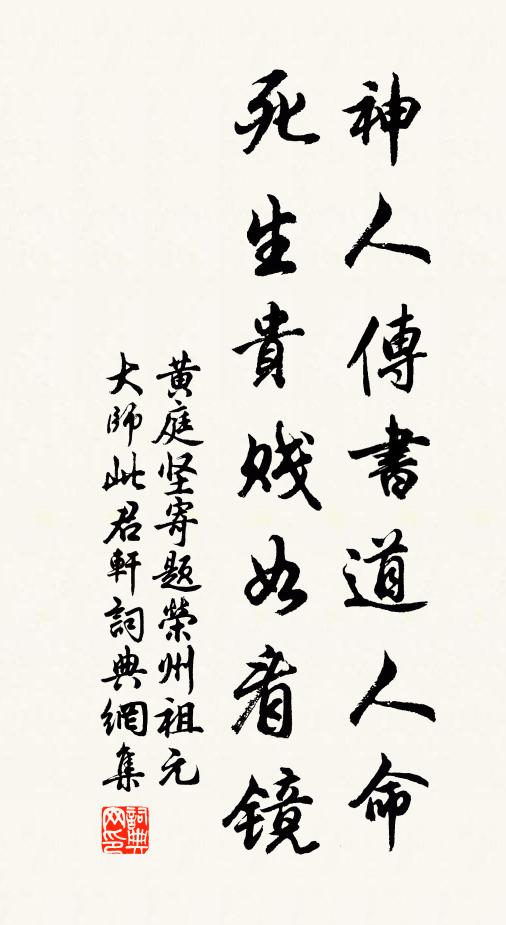 神人傳書道人命
死生貴賤如看鏡
黄庭坚寄題榮州祖元
大師此君軒詞典網集
詞典网印